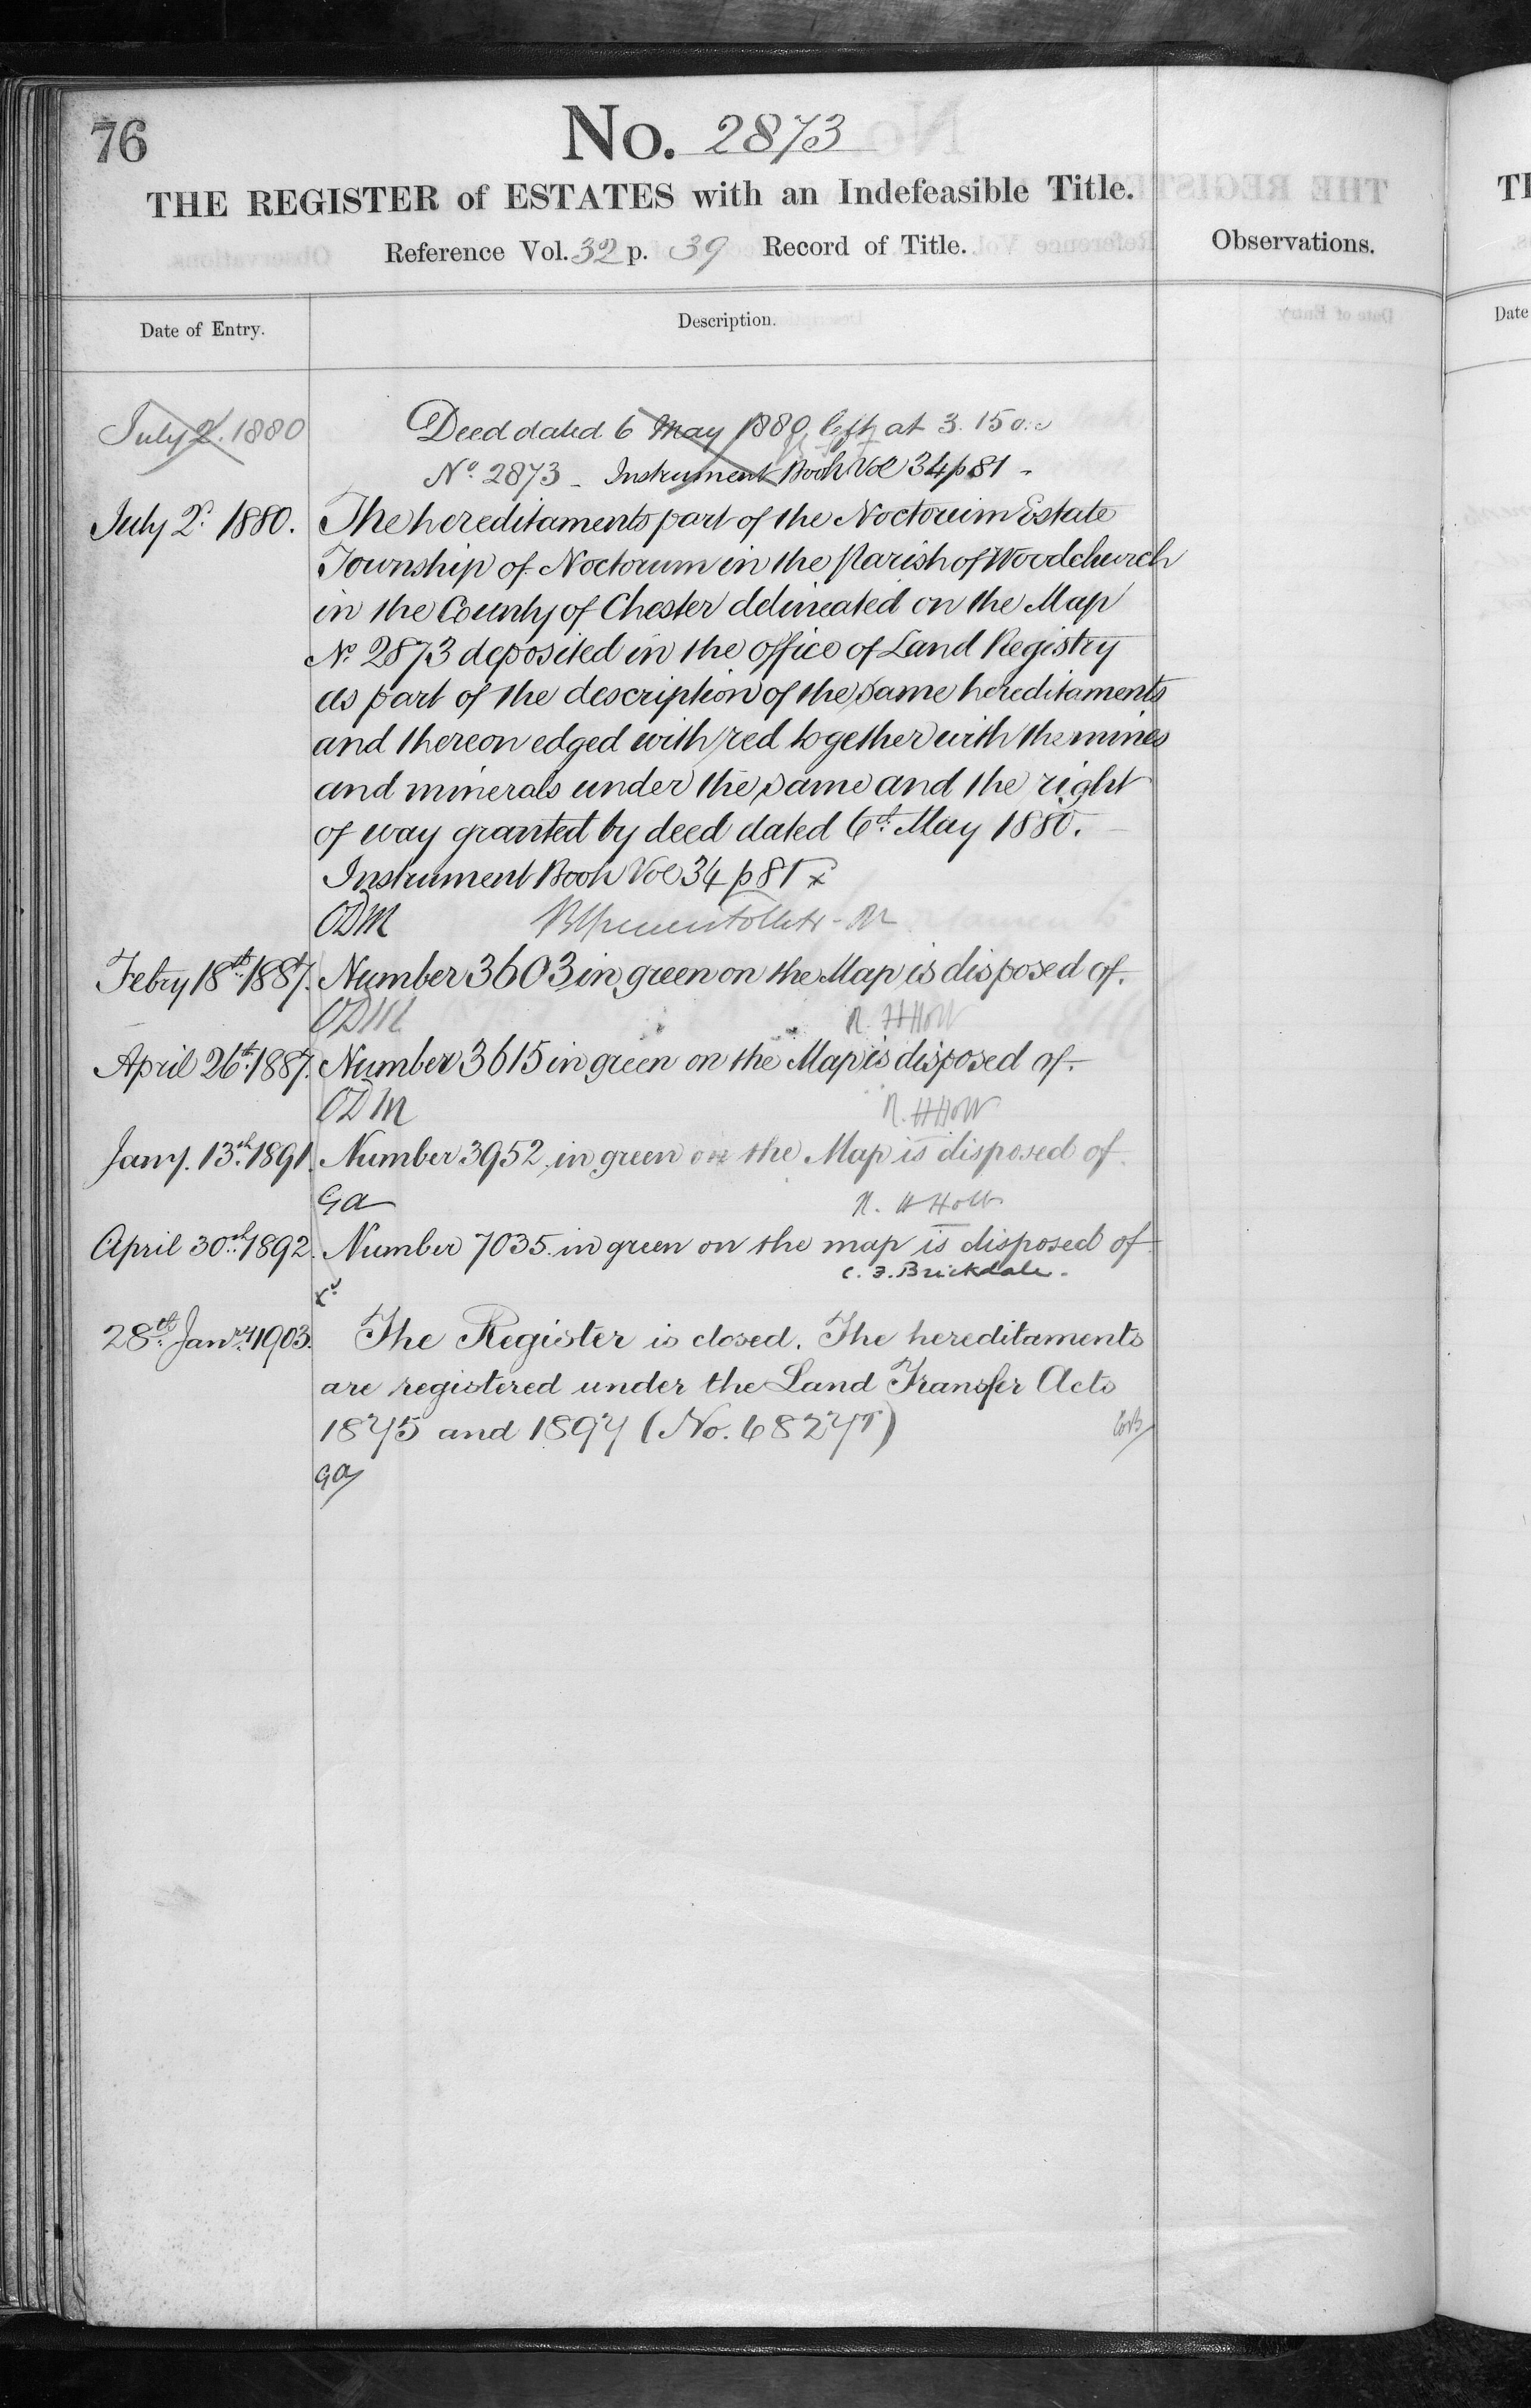 76
No. 2873
THE REGISTER of ESTATES with an Indefeasible Title.
Reference Vol. 32 p. 39 Record of Title.
Observations.
Date of Entry.
Description.
July 2. 1880
Deed dated 6 May 1880 left at 3.15
No. 2873 - Instrument Book Vol 34 p 81 -
July 2d. 1880. The hereditaments part of the Noctorum Estate
Township of Noctorum in the Parish of Woodchurch
in the County of Chester delineated on the Map
No. 2873 deposited in the office of Land Registry
as part of the description of the same hereditaments
and thereon edged with red together with the mines
and minerals under the same and the right
of way granted by deed dated 6th May 1880.
Instrument Book Vol 34 p 81 x
ODM
Febry 18th 1887. Number 3603 in green on the Map is disposed of.
ODM R. H Holt
April 26th 1887. Number 3615 in green on the Map is disposed of.
ODM R. H Holt
Jany. 13th 1891. Number 3952, in green on the Map is disposed of.
GA R. H Holt
April 30th 1892. Number 7035. in green on the map is disposed of
C. F. Brickdale.
28th Janry 1903. The Register is closed. The hereditaments
are registered under the Land Transfer Acts
1875 and 1897 (No. 6827T)
GA
TH
Date